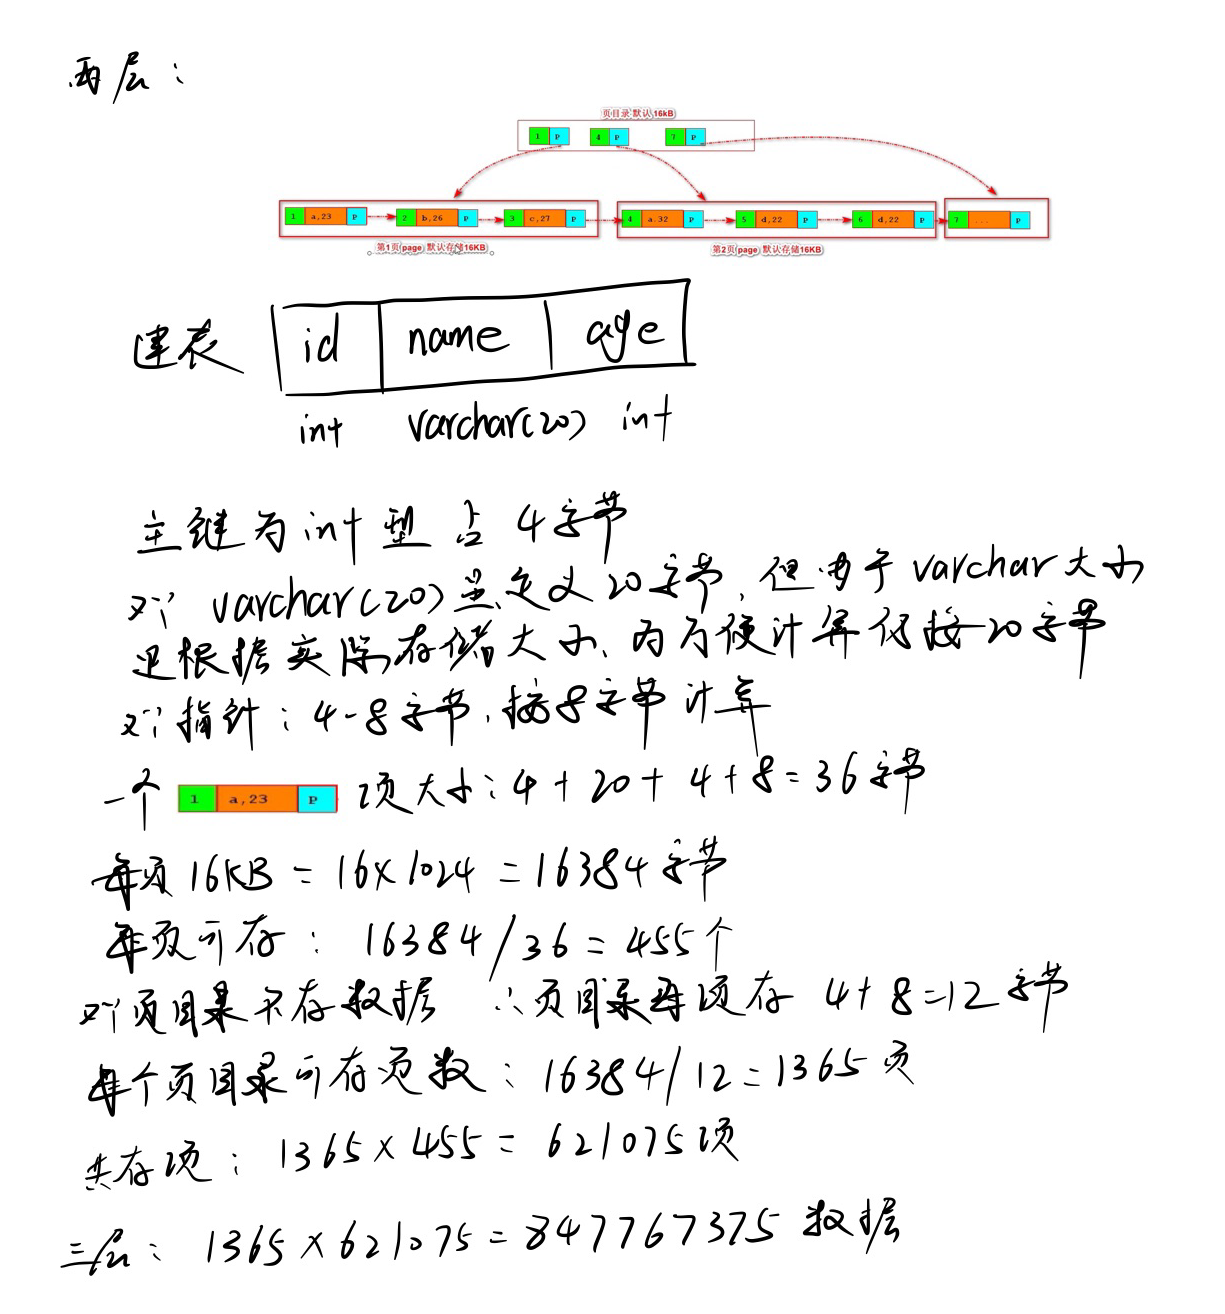 两层：
页目录 默认16kB
1 P 4 P 7 P
1 a,23 P 2 b,26 P 3 c,27 P 4 a.32 P 5 d,22 P 6 d,22 P 7 ... P
第1页(page) 默认存储16KB 第2页(page) 默认存储16KB
建表 id name age
int varchar(20) int
主键为int型 占 4字节
对 varchar(20) 定义20字节，但由于varchar大小
是根据实际存储大小、为方便计算仍按20字节
对指针：4-8字节，按8字节计算
一个 1 a,23 P 项大小：4+20+4+8=36字节
每页16KB=16×1024=16384字节
每页可存：16384/36=455个
对页目录不存数据 ∴页目录每项存 4+8=12字节
每个页目录可存页数：16384/12=1365页
共存项：1365×455=621075项
三层：1365×621075=847767375 数据